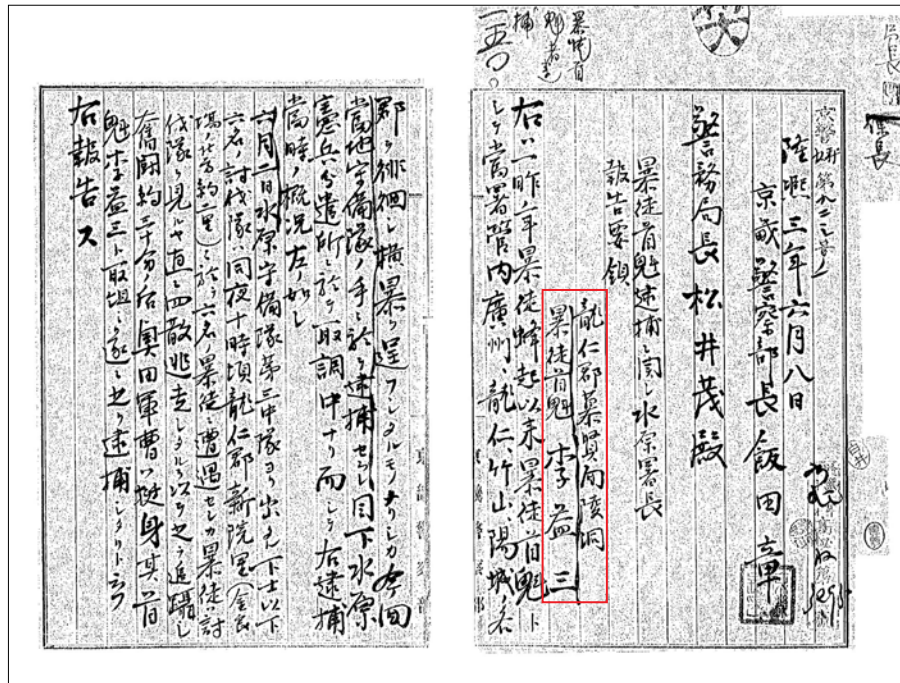 隆熙三年六月八日
京畿警察部長 飯田章
警務局長松井茂殿
暴徒首魁逮捕ニ関シ水原署長
報告要領
龍仁郡慕賢面陵洞
暴徒首魁 李益三
右ハ一昨年暴徒蜂起以来暴徒首魁ト
シテ當署管内廣州、龍仁、竹山、陽城各
郡ヲ徘徊シ横暴ヲ逞フシタルモノナリシカ今回
當地守備隊ノ手ニ於テ逮捕セラレ目下水原
憲兵分遣所ニ於テ取調中ナリ而シテ右逮捕
當時ノ概況左ノ如シ
六月二日水原守備隊第三中隊ヨリ出セル下士以下
六名ノ討伐隊ハ同夜十時頃龍仁郡新院里(金良
場ノ北方約一里)ニ於テ六名ノ暴徒ニ遭遇セシカ暴徒ハ討
伐隊ヲ見ルヤ直ニ四散逃走シタルヲ以テ之ヲ追躡シ
奮闘約三十分后奥田軍曹ハ挺身其首
魁李益三ト取組ミ遂ニ之ヲ逮捕シタリト云フ
右報告ス